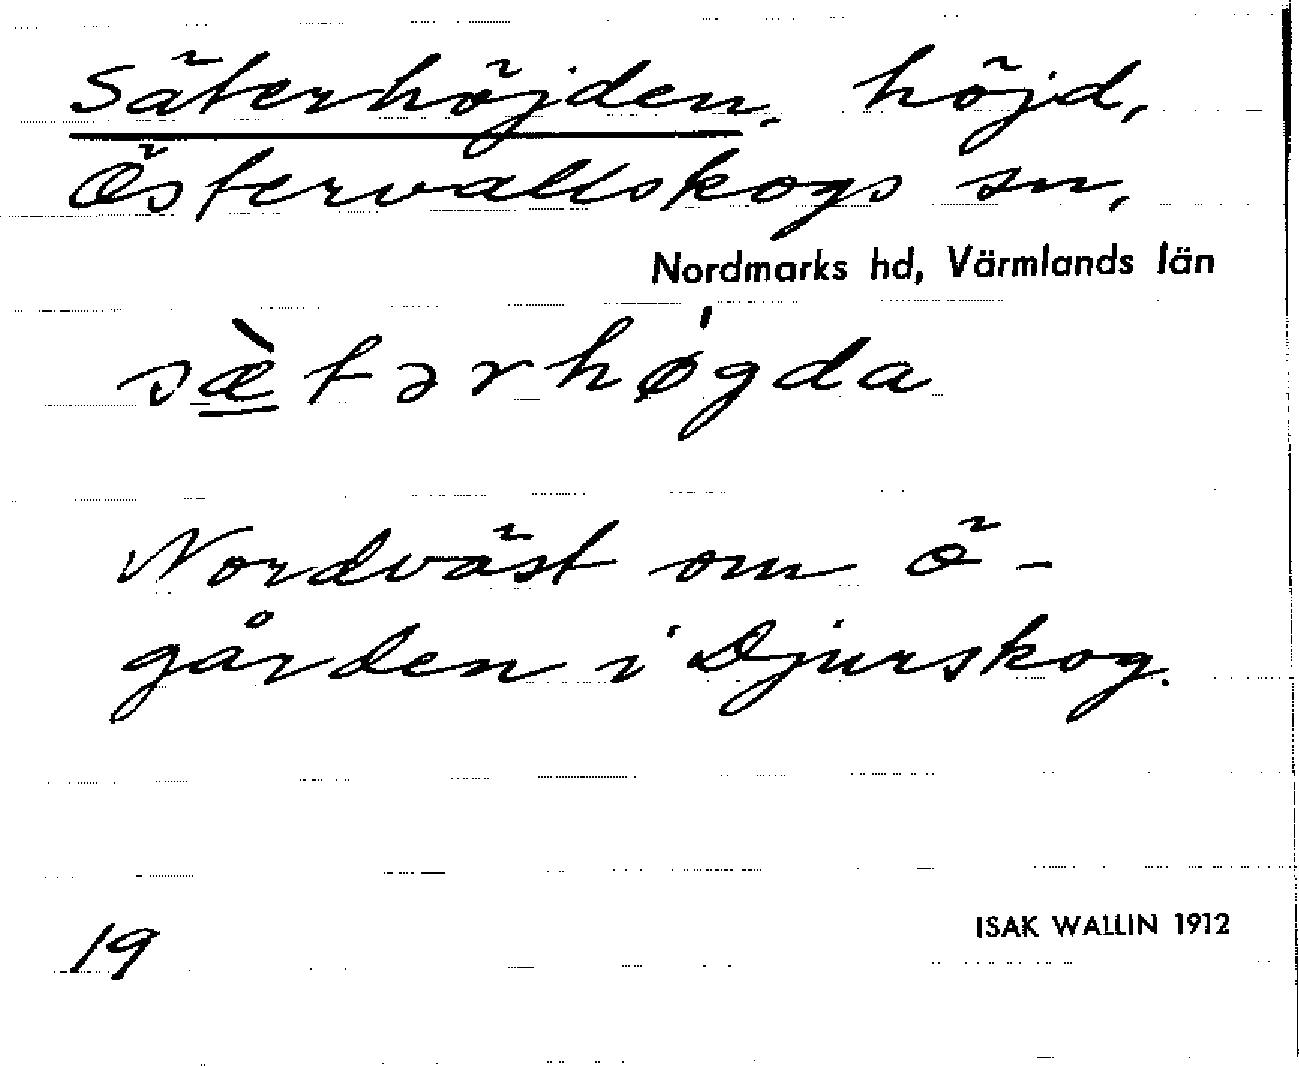 Säterhöjden, höjd,
Östervallskogs sn,
Nordmarks hd, Värmlands län
sæ̀tərhøgda
Nordväst om Ö-
gården i Djurskog.
19
ISAK WALLIN 1912